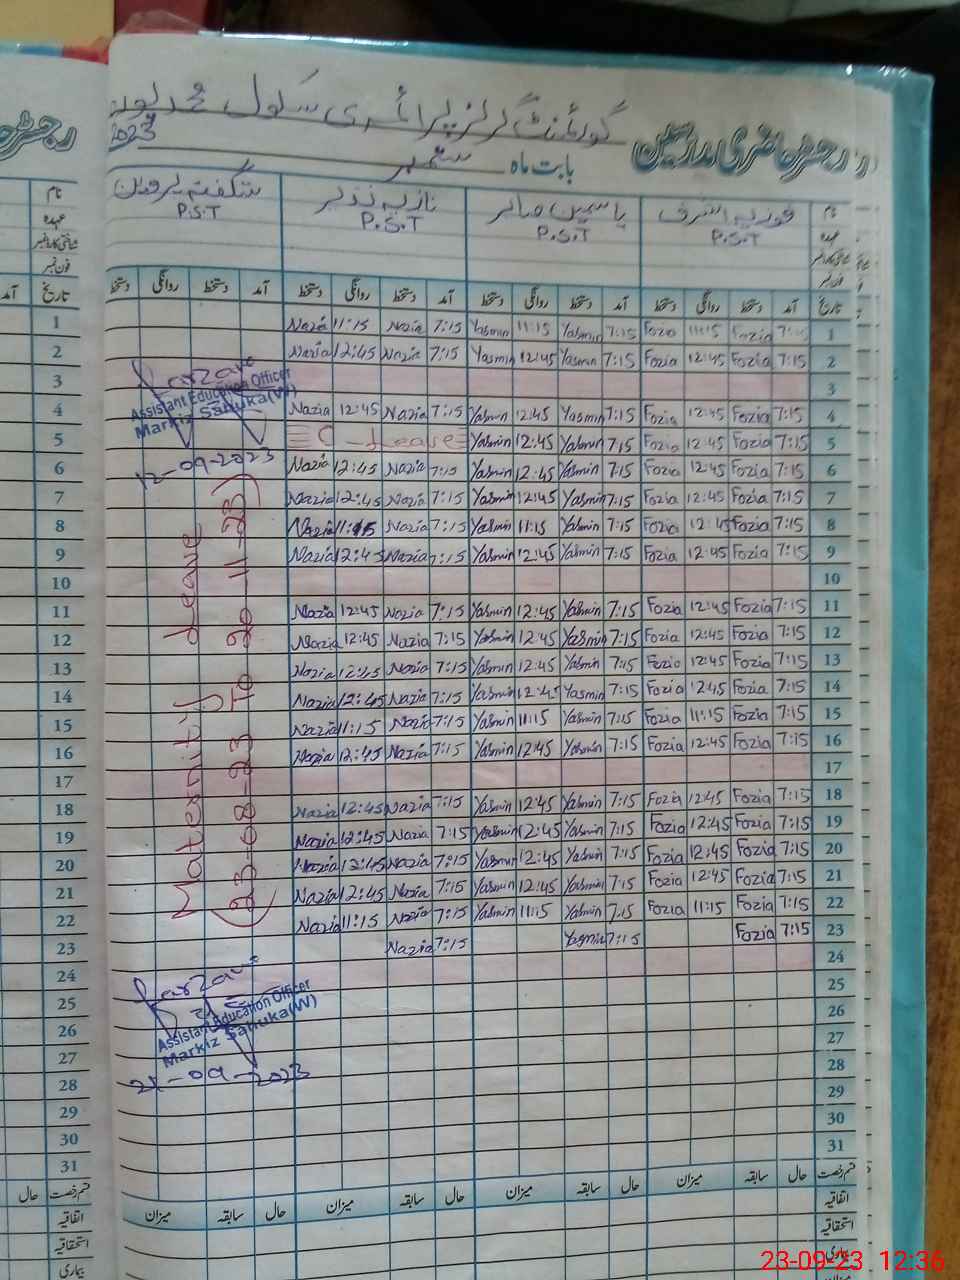 رجسٹر حاضری مدرسین
گورنمنٹ گرلز پرائمری سکول محمد پور
بابت ماہ ستمبر 2023
نام فوزیہ اشرف یاسمین صابر نازیہ نذیر شگفتہ پروین نام
عہدہ P.S.T P.S.T P.S.T P.S.T عہدہ
شناختی کارڈ نمبر
فون نمبر
تاریخ آمد دستخط روانگی دستخط آمد دستخط روانگی دستخط آمد دستخط روانگی دستخط آمد دستخط روانگی دستخط تاریخ آمد
1 Nazia 11:15 Nazia 7:15 Yasmin 11:15 Yasmin 7:15 Fozia 11:15 Fozia 7:15 1
2 Nazia 12:45 Nazia 7:15 Yasmin 12:45 Yasmin 7:15 Fozia 12:45 Fozia 7:15 2
3 3
Assistant Education Officer
Markiz Sahuka(W)
12-09-2023
4 Nazia 12:45 Nazia 7:15 Yasmin 12:45 Yasmin 7:15 Fozia 12:45 Fozia 7:15 4
5 C - Leave Yasmin 12:45 Yasmin 7:15 Fozia 12:45 Fozia 7:15 5
6 Nazia 12:45 Nazia 7:15 Yasmin 12:45 Yasmin 7:15 Fozia 12:45 Fozia 7:15 6
7 Nazia 12:45 Nazia 7:15 Yasmin 12:45 Yasmin 7:15 Fozia 12:45 Fozia 7:15 7
8 Nazia 11:15 Nazia 7:15 Yasmin 11:15 Yasmin 7:15 Fozia 12:45 Fozia 7:15 8
9 Nazia 12:45 Nazia 7:15 Yasmin 12:45 Yasmin 7:15 Fozia 12:45 Fozia 7:15 9
10 10
11 Nazia 12:45 Nazia 7:15 Yasmin 12:45 Yasmin 7:15 Fozia 12:45 Fozia 7:15 11
12 Nazia 12:45 Nazia 7:15 Yasmin 12:45 Yasmin 7:15 Fozia 12:45 Fozia 7:15 12
13 Nazia 12:45 Nazia 7:15 Yasmin 12:45 Yasmin 7:15 Fozia 12:45 Fozia 7:15 13
14 Nazia 12:45 Nazia 7:15 Yasmin 12:45 Yasmin 7:15 Fozia 12:45 Fozia 7:15 14
15 Nazia 11:15 Nazia 7:15 Yasmin 11:15 Yasmin 7:15 Fozia 11:15 Fozia 7:15 15
16 Nazia 12:45 Nazia 7:15 Yasmin 12:45 Yasmin 7:15 Fozia 12:45 Fozia 7:15 16
17 17
18 Nazia 12:45 Nazia 7:15 Yasmin 12:45 Yasmin 7:15 Fozia 12:45 Fozia 7:15 18
19 Nazia 12:45 Nazia 7:15 Yasmin 12:45 Yasmin 7:15 Fozia 12:45 Fozia 7:15 19
20 Nazia 12:45 Nazia 7:15 Yasmin 12:45 Yasmin 7:15 Fozia 12:45 Fozia 7:15 20
21 Nazia 12:45 Nazia 7:15 Yasmin 12:45 Yasmin 7:15 Fozia 12:45 Fozia 7:15 21
22 Nazia 11:15 Nazia 7:15 Yasmin 11:15 Yasmin 7:15 Fozia 11:15 Fozia 7:15 22
23 Nazia 7:15 Yasmin 7:15 Fozia 7:15 23
Maternity Leave
(23-08-23 To 20-11-23)
24 24
25 25
26 26
27 27
28 28
29 29
30 30
31 31
Assistant Education Officer
Markiz Sahuka(W)
21-09-2023
قسم رخصت حال سابقہ میزان حال سابقہ میزان حال سابقہ میزان حال سابقہ میزان قسم رخصت حال
اتفاقیہ اتفاقیہ
استحقاقیہ استحقاقیہ
بیماری بیماری
میزان
23-09-23 12:36